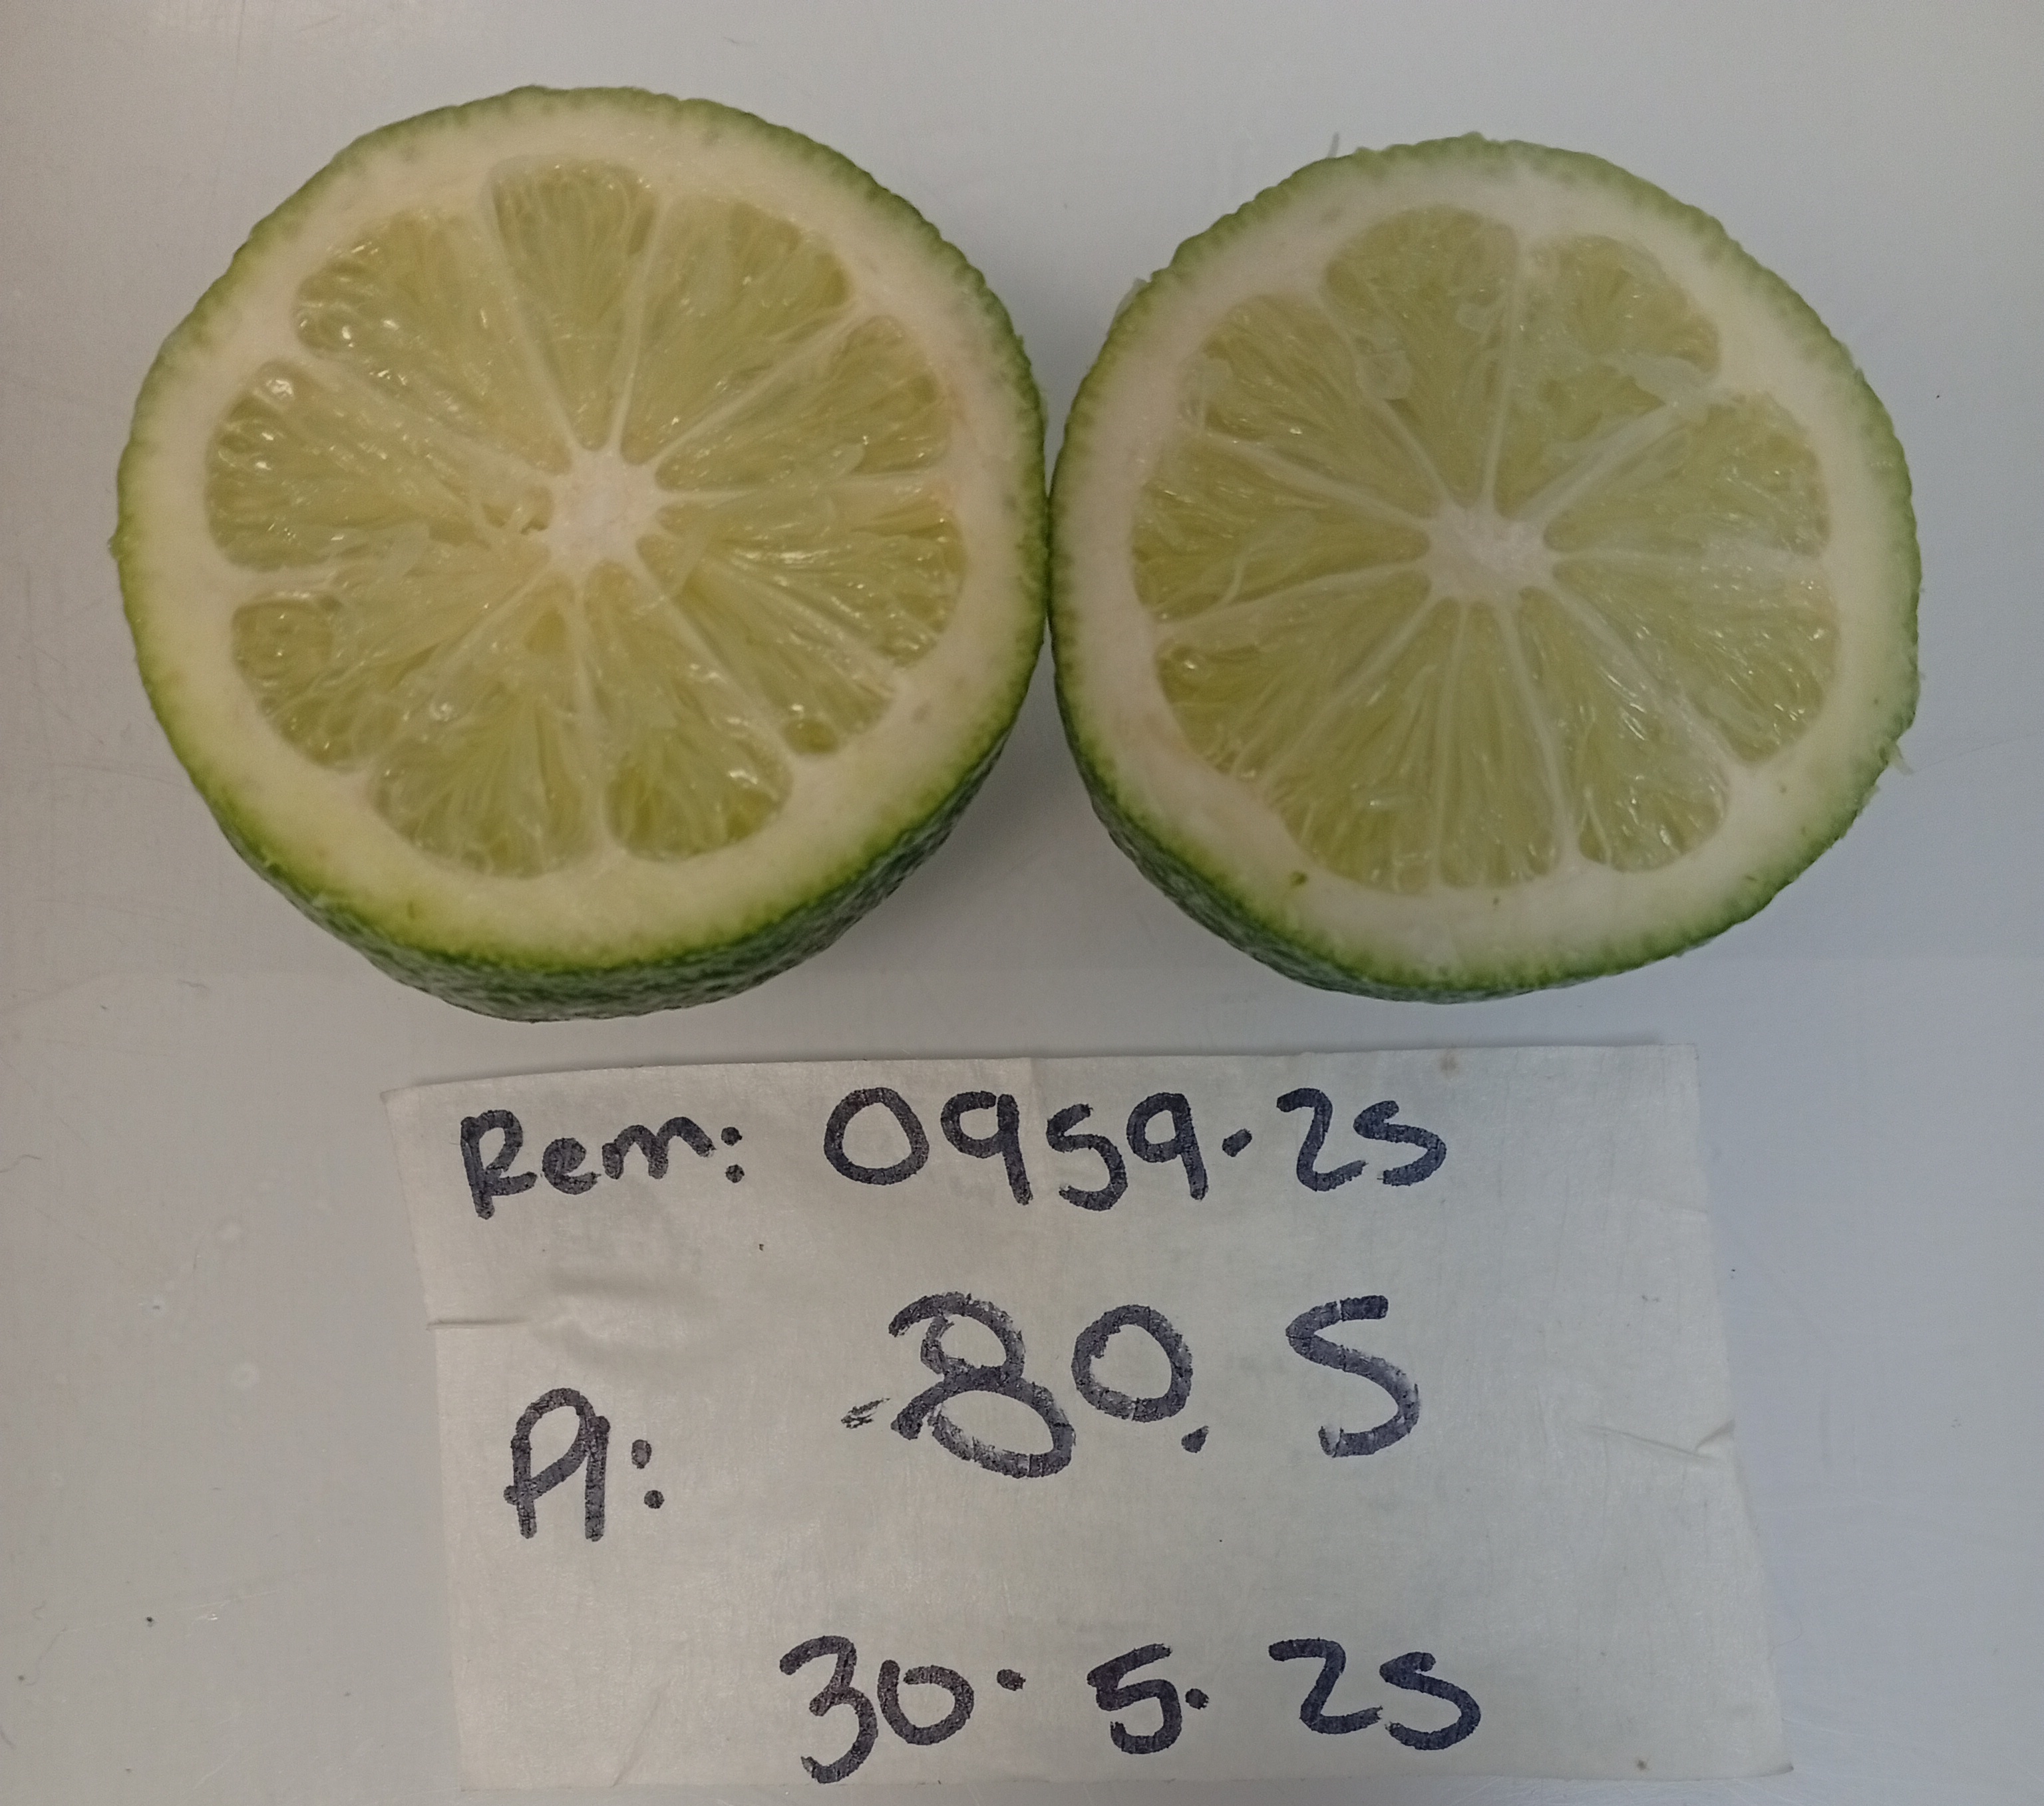 Rem: 0959.25
A: 80.5
30.5.25